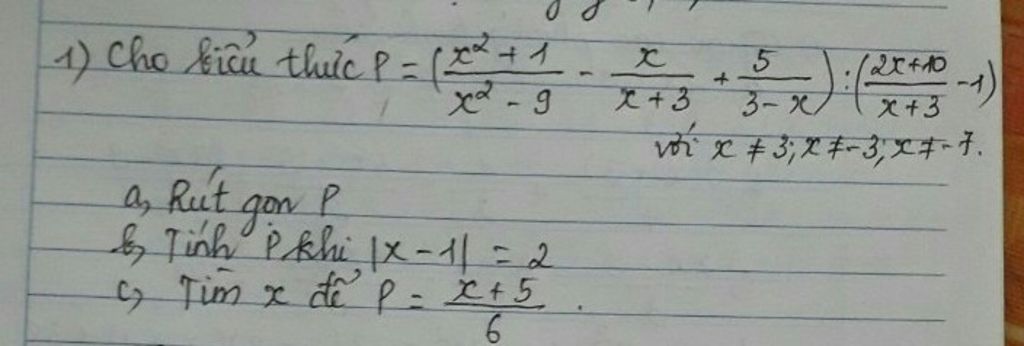 1) Cho biểu thức P = (\frac{x² + 1}{x² - 9} - \frac{x}{x + 3} + \frac{5}{3 - x}) : (\frac{2x + 10}{x + 3} - 1)
với x ≠ 3; x ≠ -3; x ≠ -7.
a, Rút gọn P
b, Tính P khi |x - 1| = 2
c, Tìm x để P = \frac{x + 5}{6}.